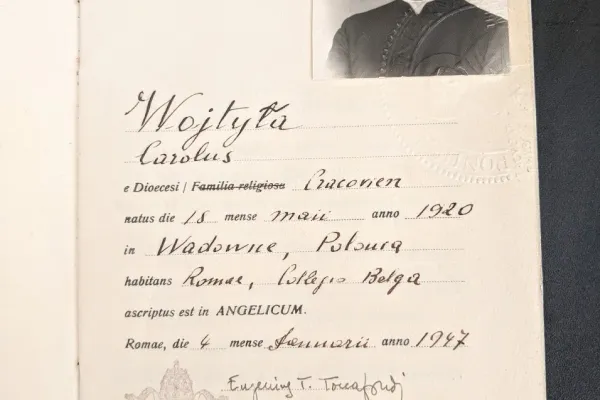 Wojtyła
Carolus
e Dioecesi / Familia religiosa Cracovien
natus die 18 mense maii anno 1920
in Wadowice, Polonia
habitans Romae, Collegio Belga
ascriptus est in ANGELICUM.
Romae, die 4 mense Januarii anno 1947
T.